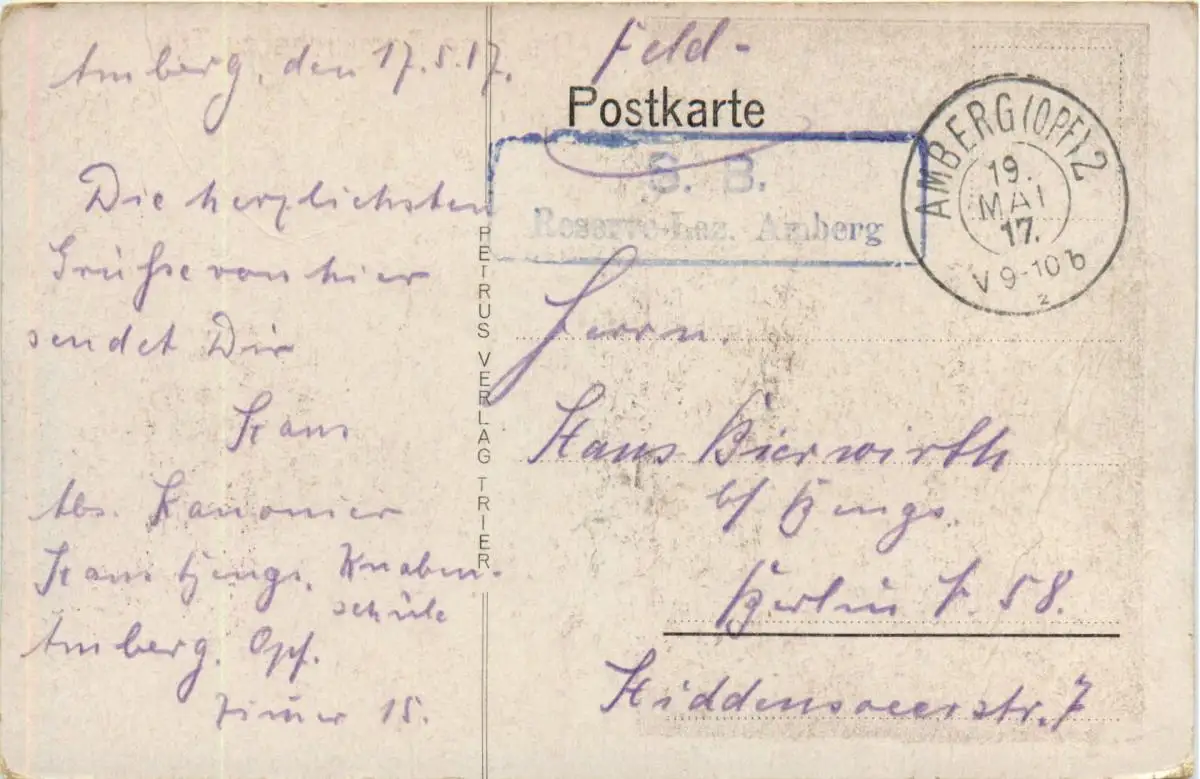 Amberg, den 17.5.17.
Die herzlichsten
Grüße von hier
sendet Dir
Hans
Abs. Kanonier
Hans Hengs. Knaben-
schule
Amberg. Opf.
Zimer 15.
PETRUS VERLAG TRIER
Feld-
Postkarte
S. B.
Reserve-Laz. Amberg
AMBERG (OPF) 2
19.
MAI
17.
V 9-10 b
2
Herrn.
Hans Bierwirth
b/ Hengs.
Berlin N. 58.
Hiddenseerstr. 7